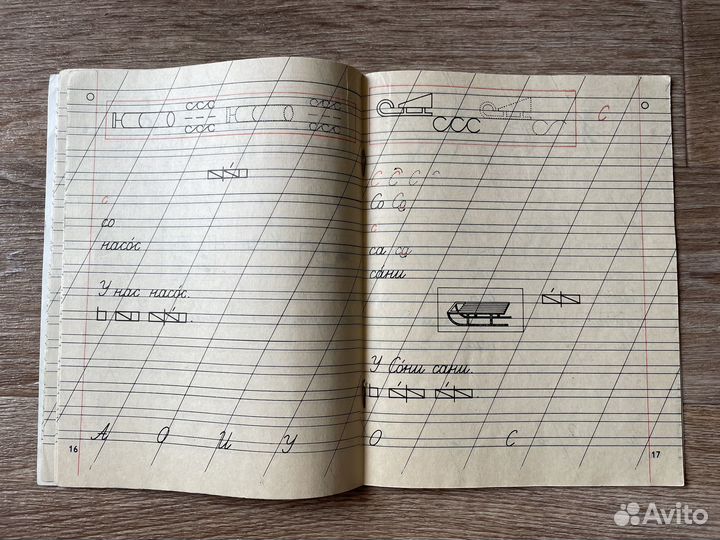 с
со
насо́с
У нас насо́с.
А О И У
16
С
С С С С
Со Со
с
са са
са́ни
У Со́ни сани.
О С
17
Avito